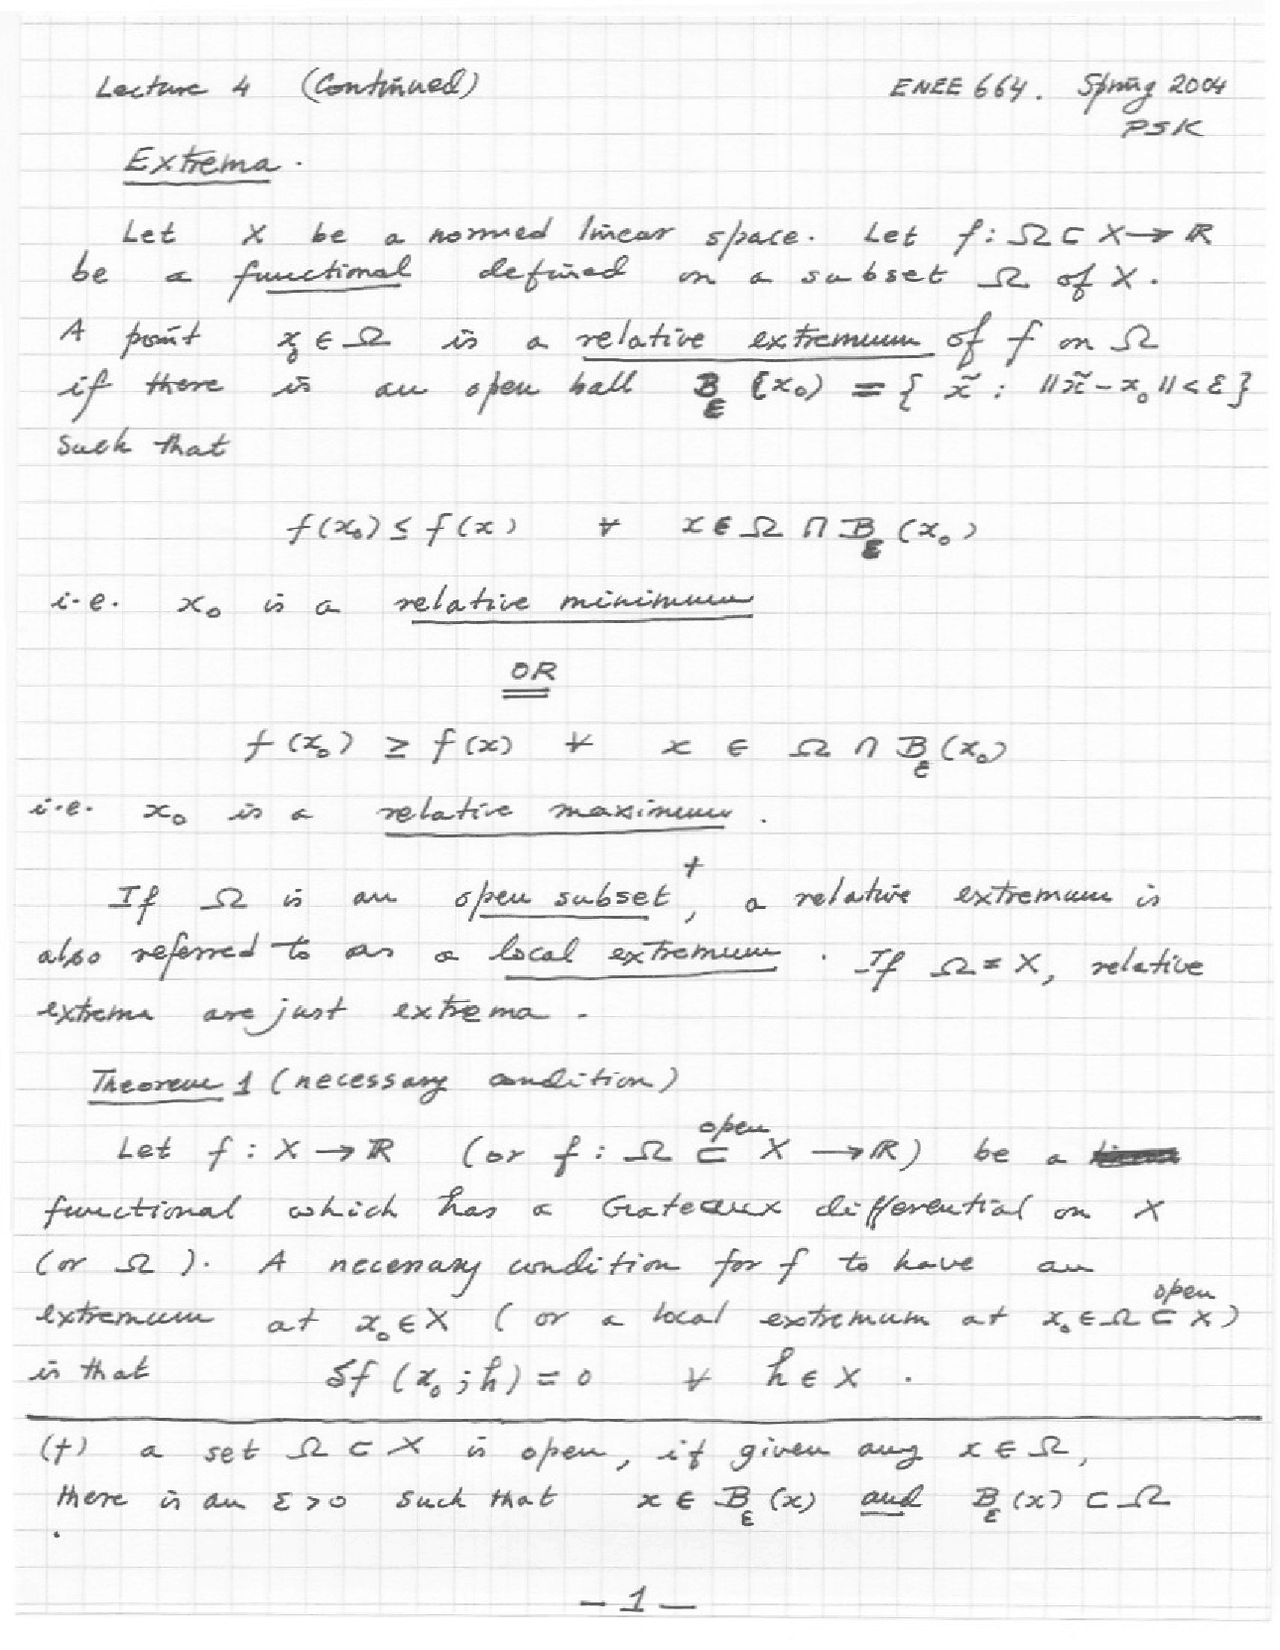 Lecture 4 (Continued) ENEE 664. Spring 2004
PSK
Extrema.
Let X be a normed linear space. Let f : Ω ⊂ X → ℝ
be a functional defined on a subset Ω of X.
A point x₀ ∈ Ω is a relative extremum of f on Ω
if there is an open ball B_ε (x₀) = { x̃ : ||x̃ - x₀|| < ε }
such that
f(x₀) ≤ f(x) ∀ x ∈ Ω ∩ B_ε (x₀)
i.e. x₀ is a relative minimum
OR
f(x₀) ≥ f(x) ∀ x ∈ Ω ∩ B_ε (x₀)
i.e. x₀ is a relative maximum.
If Ω is an open subset†, a relative extremum is
also referred to as a local extremum. If Ω = X, relative
extrema are just extrema.
Theorem 1 (necessary condition)
Let f : X → ℝ (or f : Ω open ⊂ X → ℝ) be a
functional which has a Gateaux differential on X
(or Ω). A necessary condition for f to have an
extremum at x₀ ∈ X (or a local extremum at x₀ ∈ Ω open ⊂ X)
is that δf (x₀ ; h) = 0 ∀ h ∈ X .
(†) a set Ω ⊂ X is open, if given any x ∈ Ω,
there is an ε > 0 such that x ∈ B_ε (x) and B_ε (x) ⊂ Ω
.
- 1 -